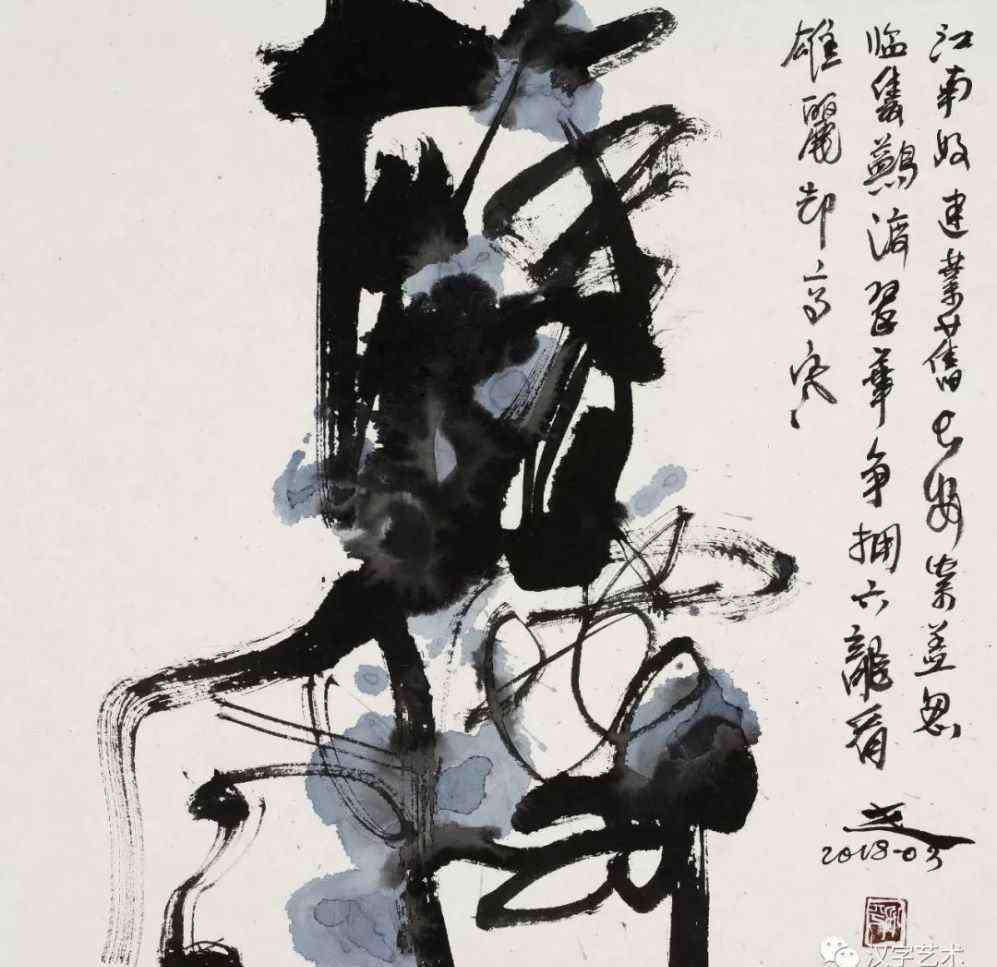 江南好建業舊长安紫盖忽
临雙鷁渡翠華争拥六龍看
雄麗却高寒
2018-03
汉字艺术